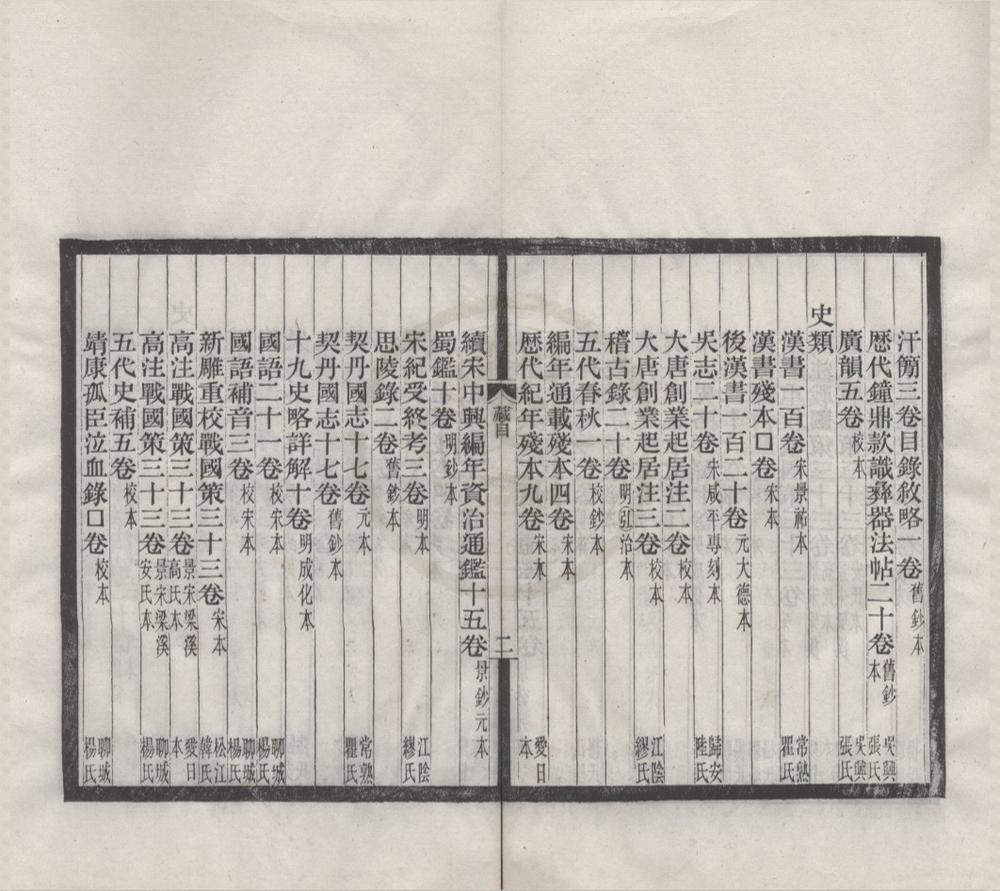 汗簡三卷目錄敘略一卷 舊鈔本
歷代鐘鼎款識彝器法帖二十卷 舊鈔本 吳興張氏
廣韻五卷 校本 吳興張氏
史類
漢書一百卷 宋景祐本 常熟瞿氏
漢書殘本口卷 宋本
後漢書一百二十卷 元大德本
吳志二十卷 宋咸平專刻本 歸安陸氏
大唐創業起居注二卷 校本
大唐創業起居注三卷 校本 江陰繆氏
稽古錄二十卷 明弘治本
五代春秋一卷 校鈔本
編年通載殘本四卷 宋本
歷代紀年殘本九卷 宋本 愛日本
藏目
二
續宋中興編年資治通鑑十五卷 景鈔元本
蜀鑑十卷 明鈔本
宋紀受終考三卷 明本 江陰繆氏
思陵錄二卷 舊鈔本
契丹國志十七卷 元本 常熟瞿氏
契丹國志十七卷 舊鈔本
十九史略詳解十卷 明成化本
國語二十一卷 校宋本 聊城楊氏
國語補音三卷 校宋本 聊城楊氏
新雕重校戰國策三十三卷 宋本 松江韓氏
高注戰國策三十三卷 景宋梁溪高氏本 愛日本
高注戰國策三十三卷 景宋梁溪安氏本 聊城楊氏
五代史補五卷 校本
靖康孤臣泣血錄口卷 校本 聊城楊氏